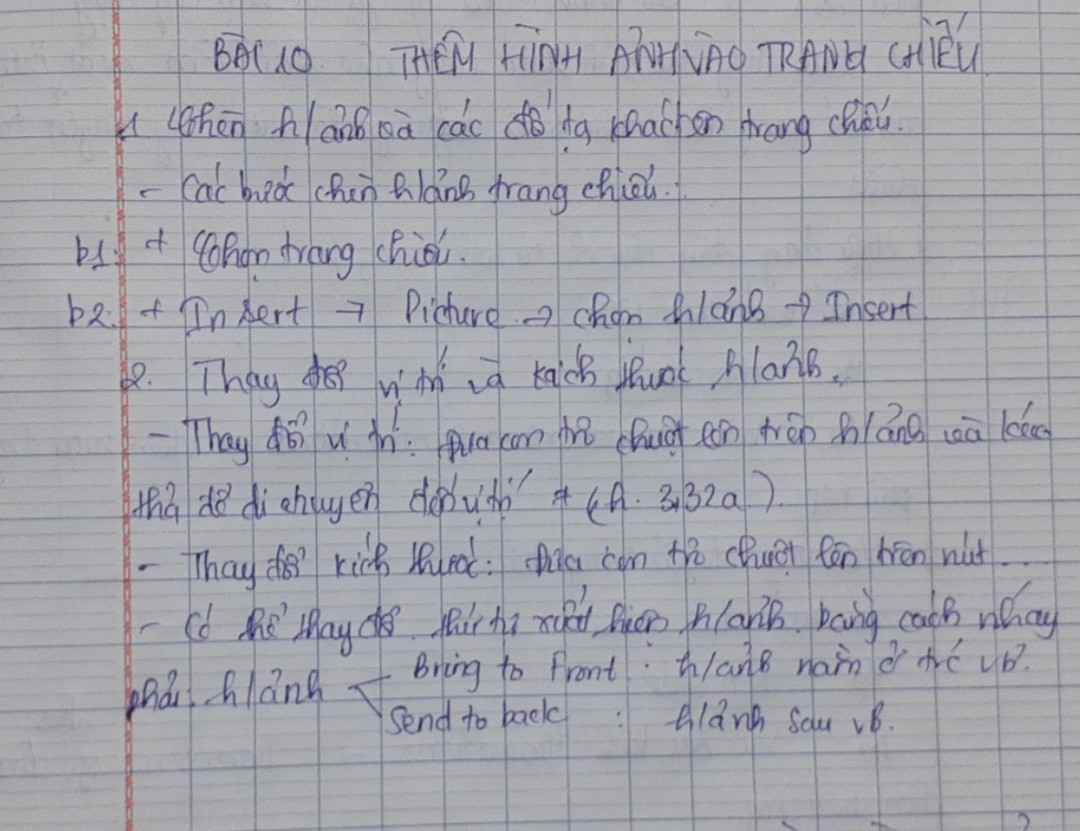 BÀI 10 THÊM HÌNH ẢNH VÀO TRANG CHIẾU
1 Chèn h/ảnh và các đối tg khác lên trang chiếu.
- Các bước chèn h/ảnh trang chiếu.
b1: + Chọn trang chiếu.
b2: + Insert → Picture → chọn h/ảnh → Insert
2. Thay đổi vị trí và kích thước h/ảnh.
- Thay đổi vị trí: Đưa con trỏ chuột lên trên h/ảnh và kéo
thả để di chuyển đến vị trí * (h. 3,32a).
- Thay đổi kích thước: đưa con trỏ chuột lên trên nút...
- Có thể thay đổi thứ tự xuất hiện h/ảnh bằng cách nháy
phải h/ảnh Bring to Front : h/ảnh nằm ở trc vb.
Send to back : h/ảnh sau vb.